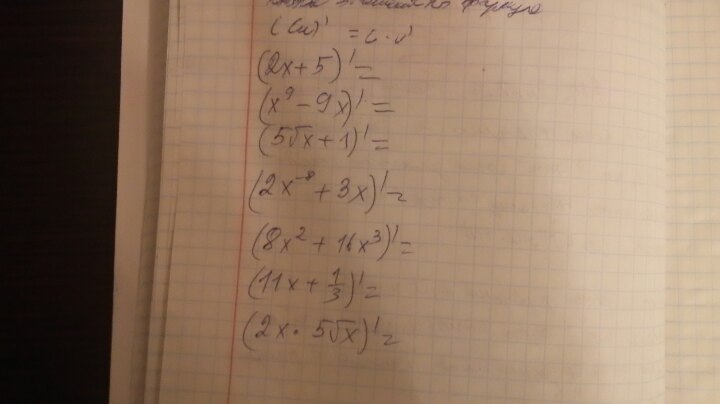 формула
(Cu)' = C·u'
(2x+5)'=
(x⁹-9x)'=
(5√x+1)'=
(2x⁻⁸+3x)'=
(8x²+16x³)'=
(11x+1/3)'=
(2x·5√x)'=